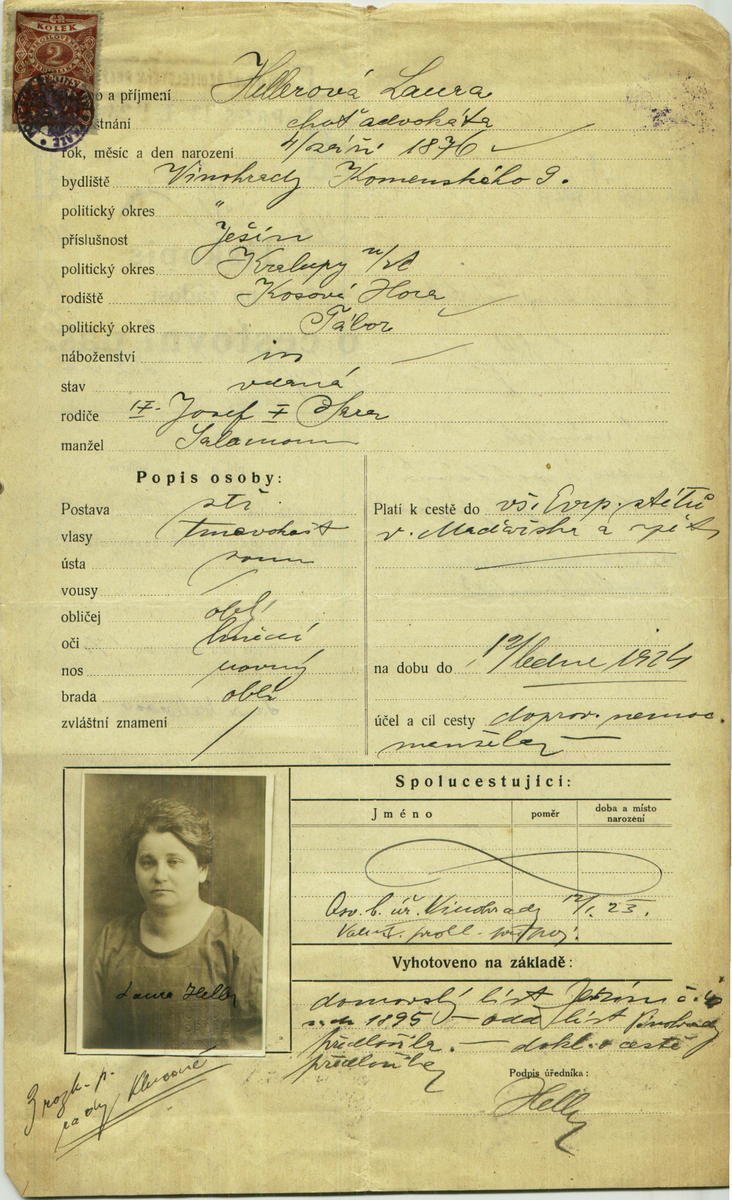 KOLEK
2
o a příjmení Hellerová Laura
stnání choť advokáta
rok, měsíc a den narození 4/září 1876
bydliště Vinohrady Komenského 9.
politický okres "
příslušnost Ješín
politický okres Kralupy n/V
rodiště Kosová Hora
politický okres Tábor
náboženství
stav vdaná
rodiče Josef Sara
manžel Salamoun
Popis osoby:
Postava stř.
vlasy tmavokašt
ústa soum
vousy /
obličej oblý
oči hnědé
nos rovný
brada oblá
zvláštní znamení /
Platí k cestě do vš. Evr. států
v. Maďarska a zpět
na dobu do 12/ledna 1924
účel a cíl cesty doprov. nemoc.
manžela
Spolucestující:
Jméno poměr doba a místo
narození
Osv. b. úř. Vinohrady 12/1. 23.
Vyhotoveno na základě:
domovský list Ješín č.
1895 – odd. list Vinohrady
předložila. – dokl. o cestě
předložila
Podpis úředníka:
Laura Heller